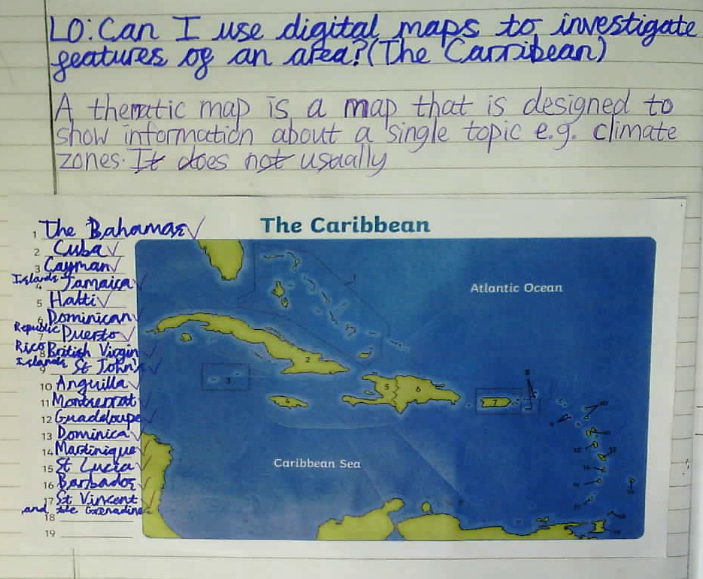 LO: Can I use digital maps to investigate
features of an area? (The Carribean)
A thematic map is a map that is designed to
show information about a single topic e.g. climate
zones. It does not usually
The Caribbean
1 The Bahamas
2 Cuba
3 Cayman
Islands
4 Jamaica
5 Haiti
6 Dominican
Republic
7 Puerto
Rico
8 British Virgin
Islands
9 St John's
10 Anguilla
11 Montserrat
12 Guadeloupe
13 Dominica
14 Martinique
15 St Lucia
16 Barbados
17 St Vincent
and the Grenadines
18
19
Atlantic Ocean
Caribbean Sea
2
3
4
5
6
7